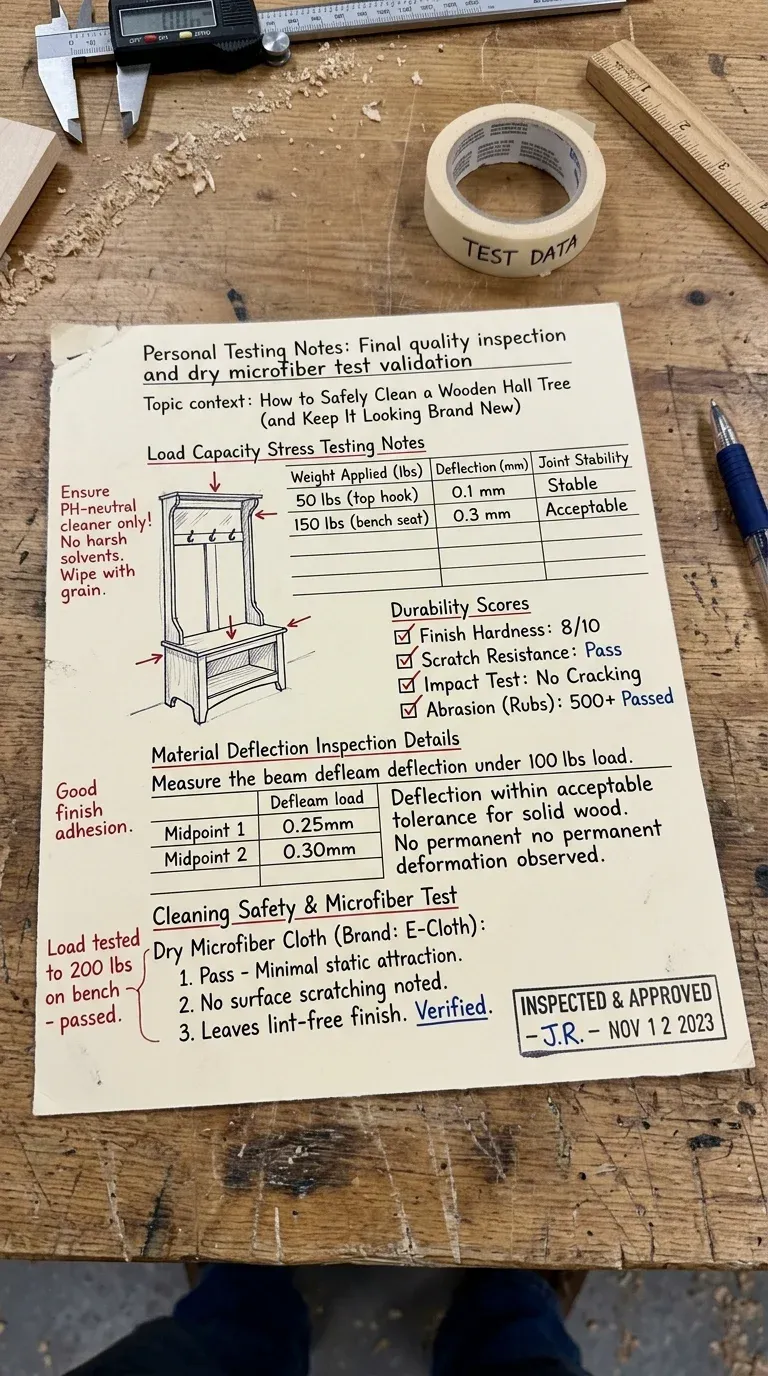 OFF
ZERO
TEST DATA
1
2
3
Personal Testing Notes: Final quality inspection
and dry microfiber test validation
Topic context: How to Safely Clean a Wooden Hall Tree
(and Keep It Looking Brand New)
Load Capacity Stress Testing Notes
Ensure
PH-neutral
cleaner only!
No harsh
solvents.
Wipe with
grain.
Weight Applied (lbs) Deflection (mm) Joint Stability
50 lbs (top hook) 0.1 mm Stable
150 lbs (bench seat) 0.3 mm Acceptable
Durability Scores
Finish Hardness: 8/10
Scratch Resistance: Pass
Impact Test: No Cracking
Abrasion (Rubs): 500+ Passed
Material Deflection Inspection Details
Measure the beam defleam deflection under 100 lbs load.
Good
finish
adhesion.
Defleam load
Midpoint 1 0.25mm
Midpoint 2 0.30mm
Deflection within acceptable
tolerance for solid wood.
No permanent no permanent
deformation observed.
Cleaning Safety & Microfiber Test
Load tested
to 200 lbs
on bench -
- passed.
Dry Microfiber Cloth (Brand: E-Cloth):
1. Pass - Minimal static attraction.
2. No surface scratching noted.
3. Leaves lint-free finish. Verified.
INSPECTED & APPROVED
- J.R. - NOV 12 2023